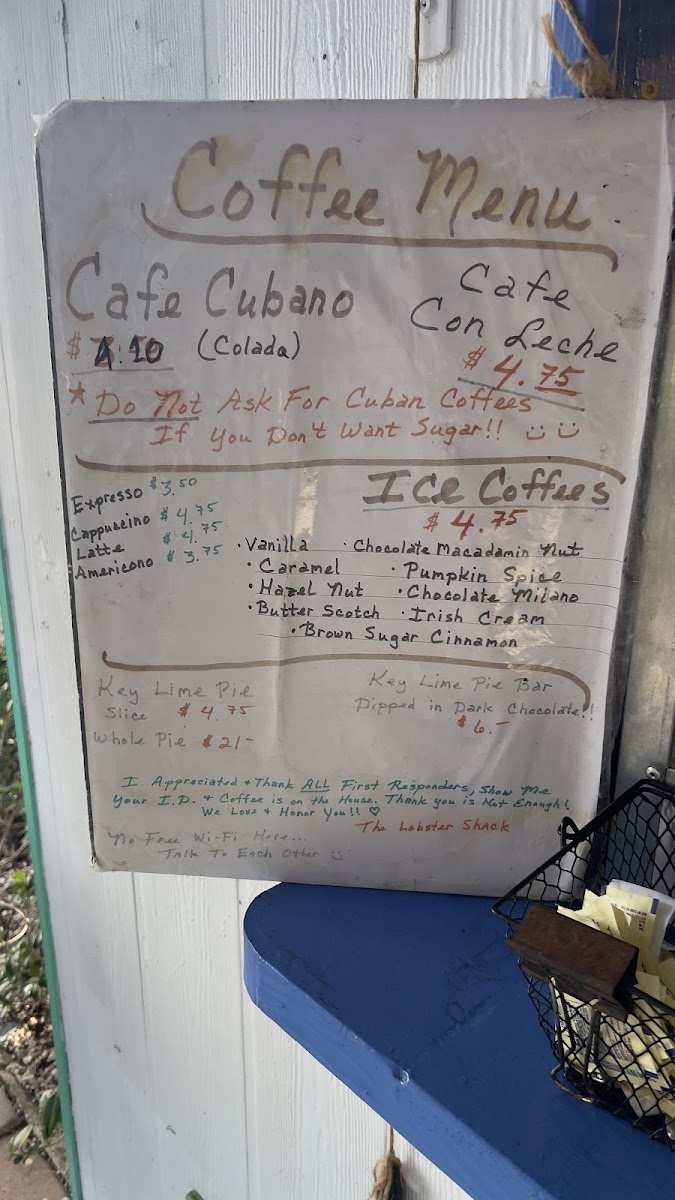 Coffee Menu
Cafe Cubano
$ 4.10 (Colada)
Cafe
Con Leche
$ 4.75
* Do Not Ask For Cuban Coffees
If You Don't Want Sugar!!
Expresso $3.50
Cappuccino $4.75
Latte $4.75
Americano $3.75
ICe Coffees
$4.75
• Vanilla • Chocolate Macadamin Nut
• Caramel • Pumpkin Spice
• Hazel Nut • Chocolate Milano
• Butter Scotch • Irish Cream
• Brown Sugar Cinnamon
Key Lime Pie
Slice $4.75
Whole Pie $21-
Key Lime Pie Bar
Dipped in Dark Chocolate!!
$6.-
I Appreciated + Thank ALL First Responders, Show Me
Your I.D. + Coffee is on the House. Thank you is Not Enough!
We Love + Honor You!! ♡
The Lobster Shack
No Free Wi-Fi Here...
Talk To Each Other ☺